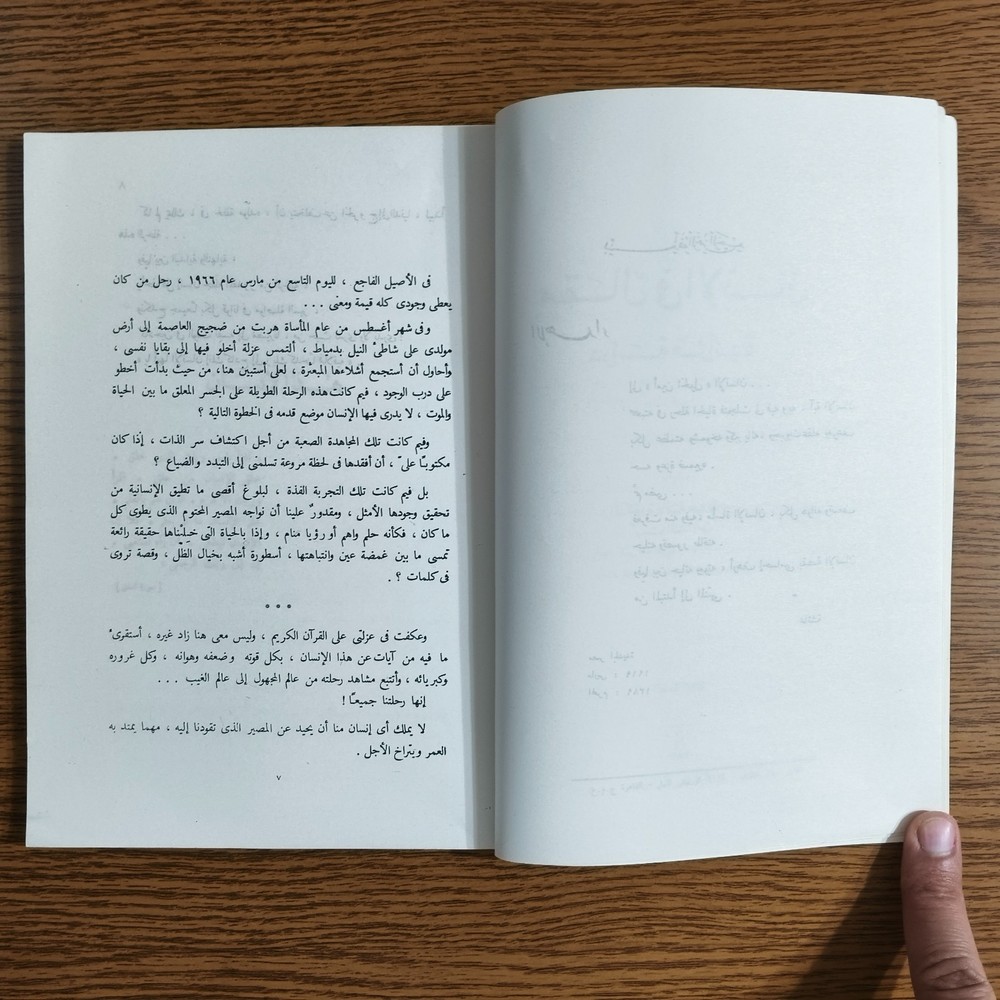 فى الأصيل الفاجع ، لليوم التاسع من مارس عام ١٩٦٦ ، رحل من كان
يعطى وجودى كله قيمة ومعنى . . .
وفى شهر أغسطس من عام المأساة هربت من ضجيج العاصمة إلى أرض
مولدى على شاطئ النيل بدمياط ، ألتمس عزلة أخلو فيها إلى بقايا نفسى ،
وأحاول أن أستجمع أشلاءها المبعثرة ، لعلى أستبين هنا، من حيث بدأت أخطو
على درب الوجود ، فيم كانت هذه الرحلة الطويلة على الجسر المعلق ما بين الحياة
والموت ، لا يدرى فيها الإنسان موضع قدمه فى الخطوة التالية ؟
وفيم كانت تلك المجاهدة الصعبة من أجل اكتشاف سر الذات ، إذا كان
مكتوبًا علىّ ، أن أفقدها فى لحظة مروعة تسلمنى إلى التبدد والضياع ؟
بل فيم كانت تلك التجربة الفذة ، لبلوغ أقصى ما تطيق الإنسانية من
تحقيق وجودها الأمثل ، ومقدورٌ علينا أن نواجه المصير المحتوم الذى يطوى كل
ما كان ، فكأنه حلم واهم أو رؤيا منام ، وإذا بالحياة التى خِلْناها حقيقة رائعة
تمسى ما بين غمضة عين وانتباهتها ، أسطورة أشبه بخيال الظّل ، وقصة تروى
فى كلمات ؟ .
• • •
وعكفت فى عزلتى على القرآن الكريم ، وليس معى هنا زاد غيره ، أستقرئ
ما فيه من آيات عن هذا الإنسان ، بكل قوته وضعفه وهوانه ، وكل غروره
وكبريائه ، وأتتبع مشاهد رحلته من عالم المجهول إلى عالم الغيب . . .
إنها رحلتنا جميعًا !
لا يملك أى إنسان منا أن يحيد عن المصير الذى تقودنا إليه ، مهما يمتد به
العمر ويتراخ الأجل .
٧